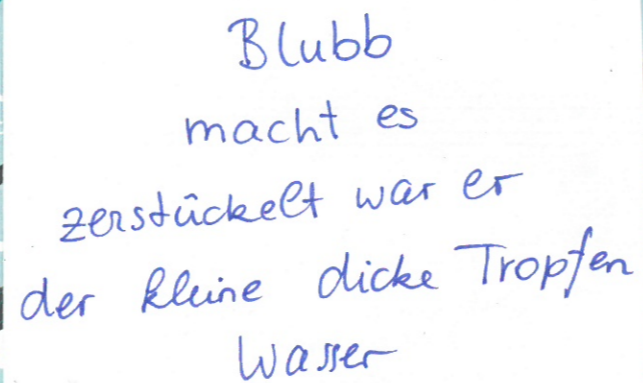 Blubb
macht es
zerstückelt war er
der kleine dicke Tropfen
Wasser